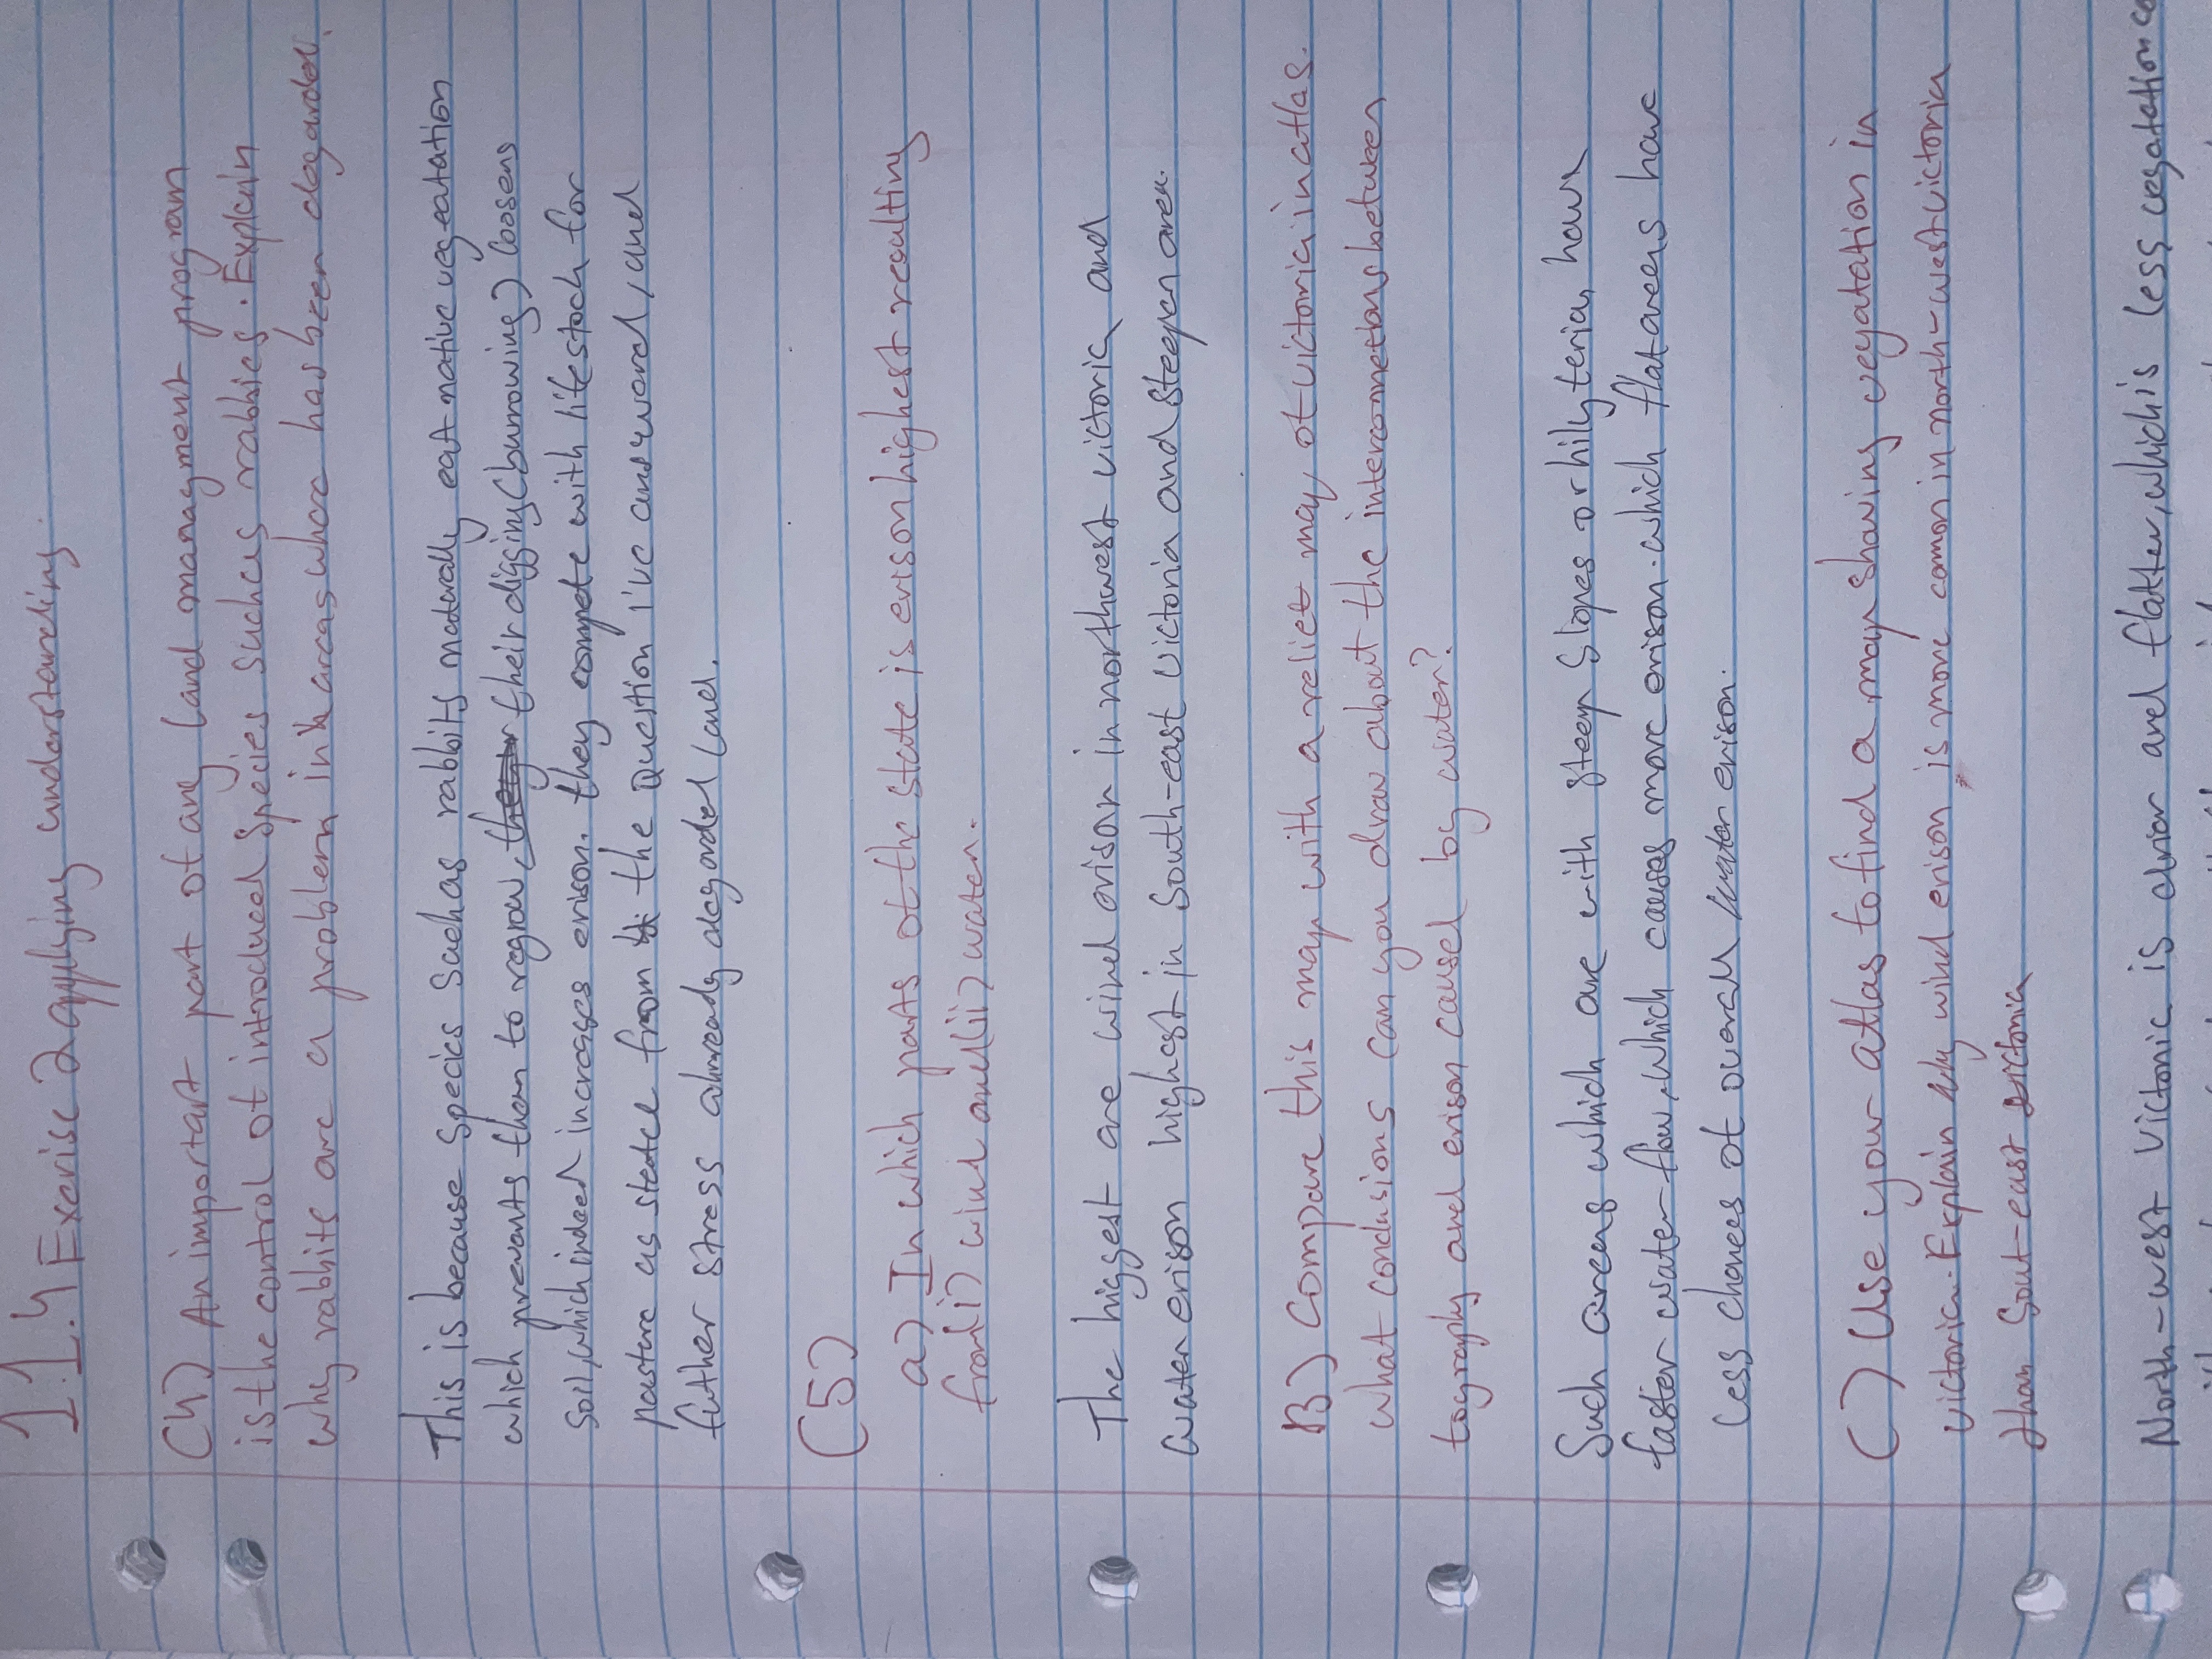 1.4 Exerise 2 applying understanding.
(4) An important part of any land managment program
is the control of introduced species such as rabbies. Explain
why rabbits are a problem in areas where has been degarded.
This is because species such as rabbits naturally eat native vegeatation
which prevants them to regrow, their digging(burrowing) loosens
soil, which indeed increases erison. they compete with lifestock for
pasture as stated from the Question i've answerd, and
futher stress alwready degraded land.
(5)
a) In which parts of the state is erison highest resulting
from(i) wind and(ii) water.
The higgest are wind erison in northwest victoria and
water erison highest in South-east victoria and steeper area.
B) Compare this map with a relief map of victoria in atlas.
what conclusions can you draw about the interconnections between
tography and erison caused by water?
Such areas which are with steep slopes or hily terian have
faster water-flow, which causes more erison. which flatareas have
less chances of overall water erison.
C) Use your atlas to find a map showing veyatation in
victoria. Explain why wind erison is more common in north-west victoria
than Sout-east victoria
North-west victoria is drier and flatter, which is less vegatation